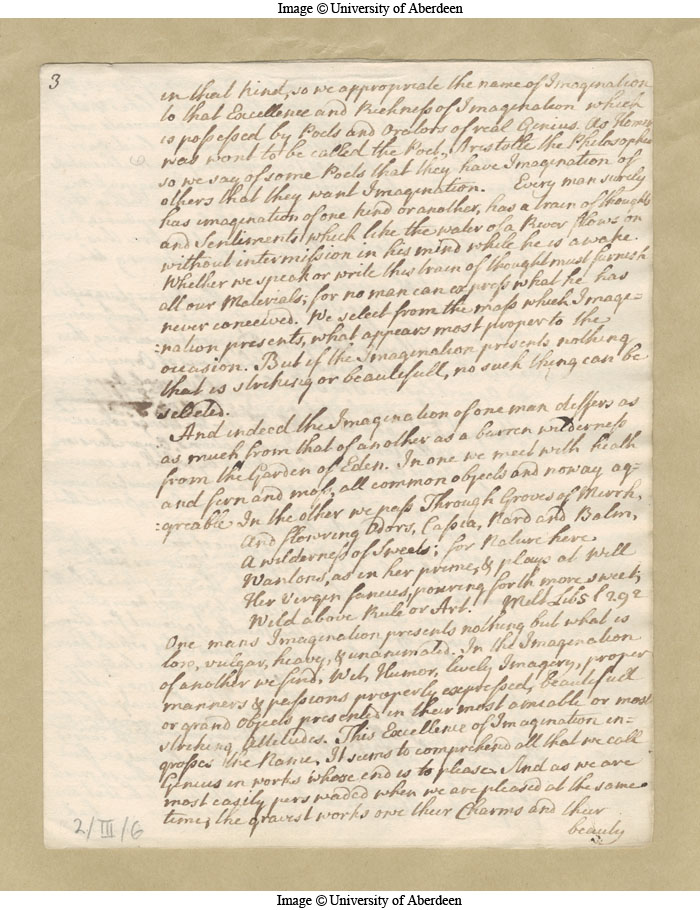 Image © University of Aberdeen
3
in that kind, so we appropriate the name of Imagination
to that Excellence and Richness of Imagination which
is possessed by Poets and Orators of real Genius. As Homer
was wont to be called the Poet, Aristotle the Philosopher
so we say of some Poets that they have Imagination of
others that they want Imagination. Every man surely
has imagination of one kind or another, has a train of thoughts
and Sentiments which like the water of a River flows on
without intermission in his mind while he is awake.
Whether we speak or write this train of thought must furnish
all our Materials; for no man can express what he has
never conceived. We select from the mass which Imagi=
:nation presents, what appears most proper to the
occasion. But if the Imagination presents nothing
that is striking or beautifull, no such thing can be
selected.
And indeed the Imagination of one man differs as
as much from that of another as a barren wilderness
from the Garden of Eden. In one we meet with heath
and fern and moss, all common objects and noway ag-
:greable In the other we pass Through Groves of Mirrh,
And flowring Odors, Cassia, Nard and Balm,
A wilderness of Sweets; for Nature here
Wantons, as in her prime, & plays at Will
Her Virgin fancies, pouring forth more sweet,
Wild above Rule or Art. Milt. Lib 5 l 292
One mans Imagination presents nothing but what is
low, vulgar, heavy, & unanimated. In the Imagination
of another we find, Wit, Humor, lively Imagery, proper
manners & passions properly expressed, beautifull
or grand Objects presented in their most amiable or most
striking Attitudes. This Excellence of Imagination in=
grosses the Name, It seems to comprehend all that we call
Genius in works whose end is to please. And as we are
most easily perswaded when we are pleased at the same
time, the gravest works owe their Charms and their
beauty
2/III/6
Image © University of Aberdeen